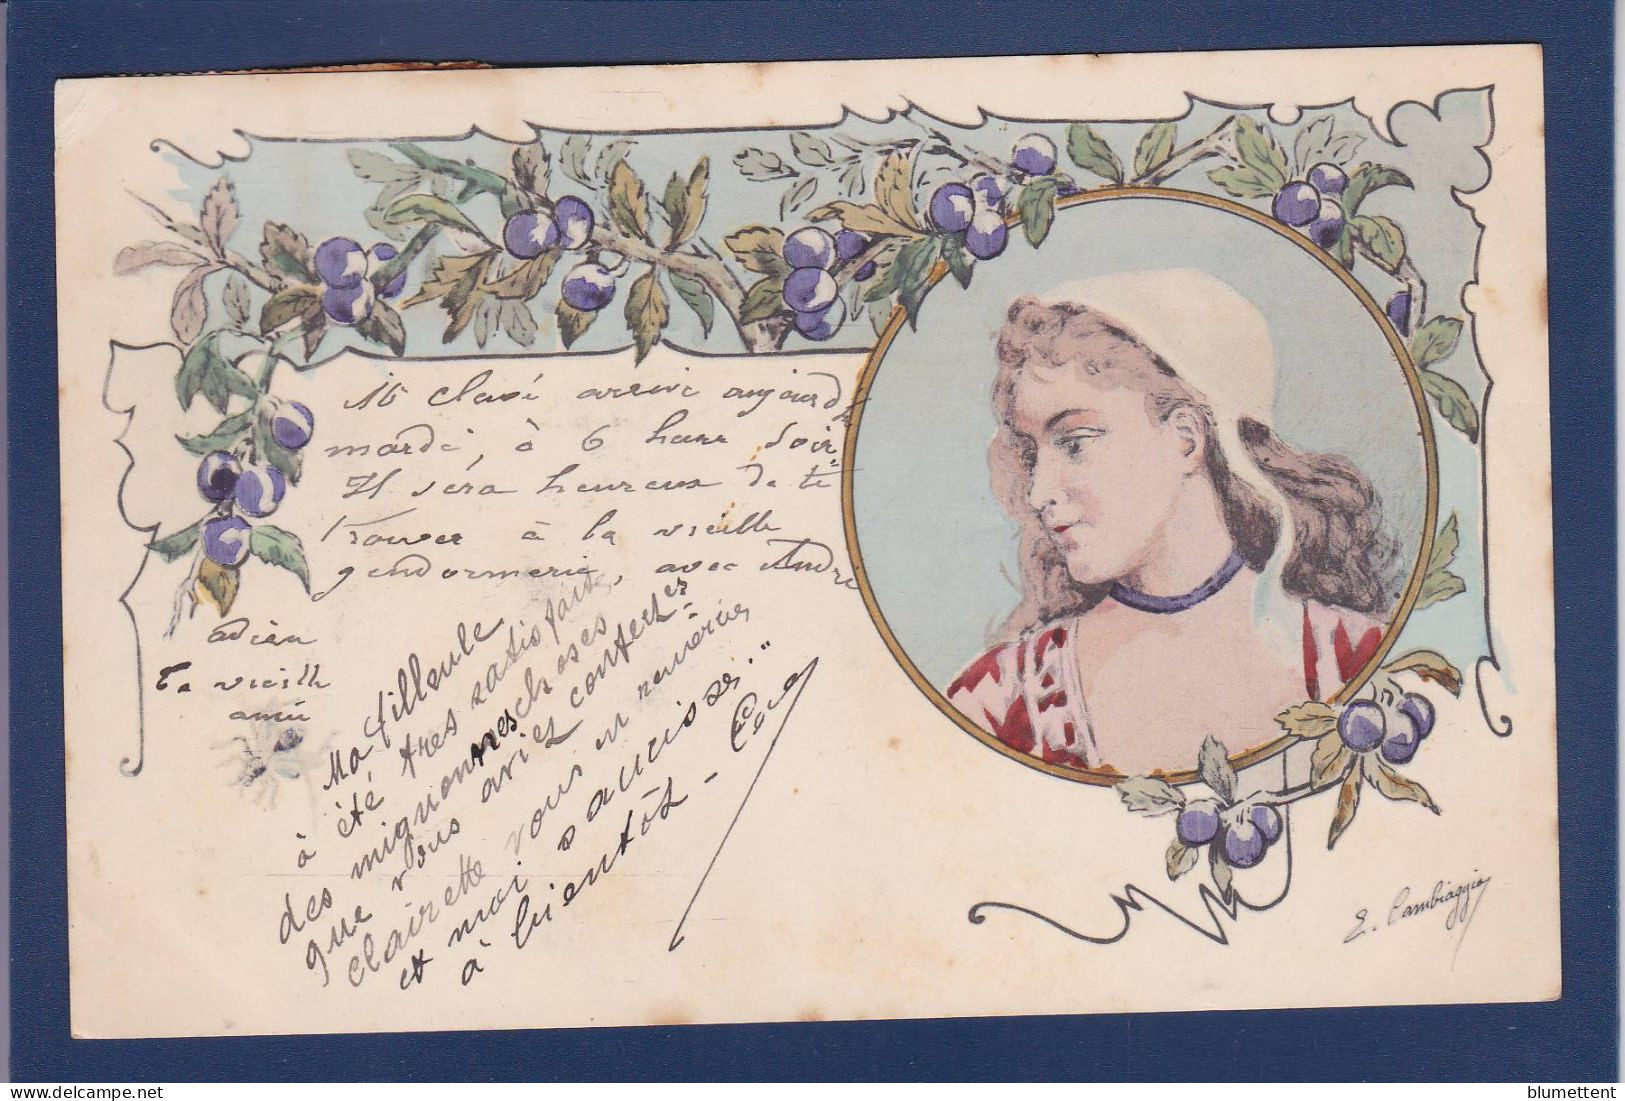 Mr Clavé arrive aujourd'h
mardi, à 6 heur soir
Il sera heureux de te
trouver à la vieille
gendarmerie, avec André
adieu
Ta vieille
amie
Ma filleule
à été très satisfaite
des mignonnes choses
que vous avi et
clairette vous en remercie
et moi aussi
à bientôt -
E. Cambiaggio
blumettent